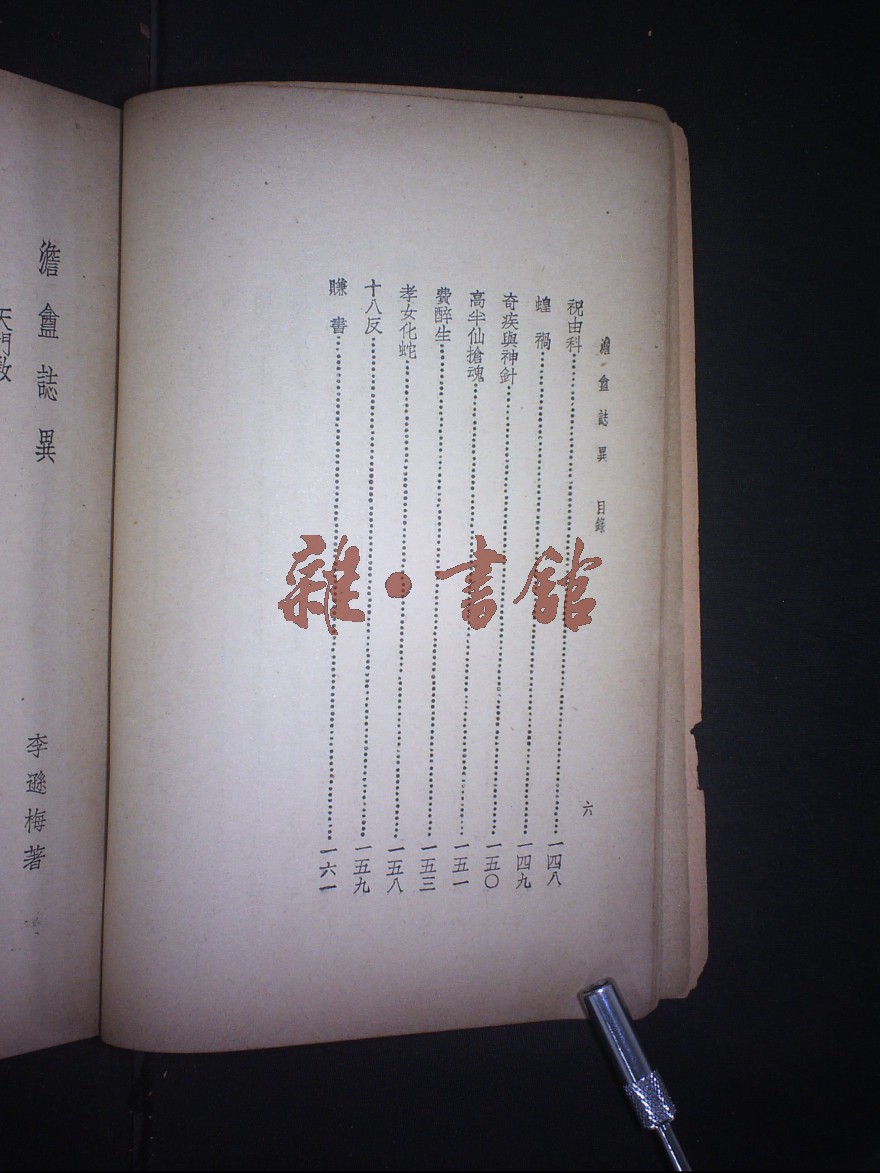 澹盦誌異 目錄
六
祝由科……一四八
蝗禍……一四九
奇疾與神針……一五〇
高半仙搶魂……一五一
費醉生……一五三
孝女化蛇……一五八
十八反……一五九
賺書……一六一
雜·書館
澹盦誌異
李遜梅著
天門